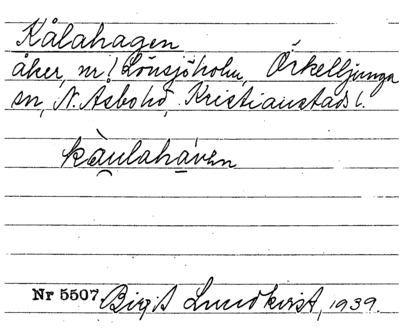 Kålahagen
åker, nr 1 Lönsjöholm, Örkelljunga
sn, N. Åsbo hd, Kristianstads l.
kàulahávɛn
Nr 5507 Birgit Lundkvist, 1939.